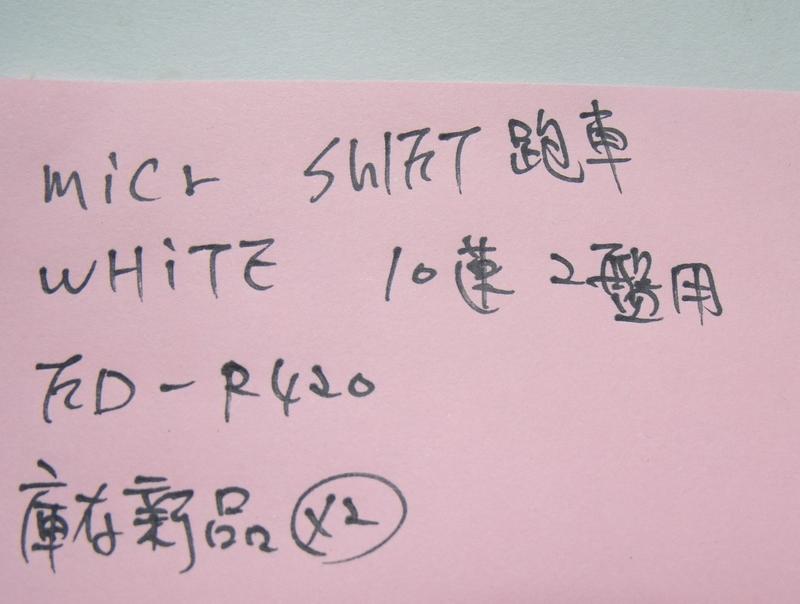 micr SHIFT 跑車
WHiTE 10蓮 2盤用
FD-R420
庫存新品 x2